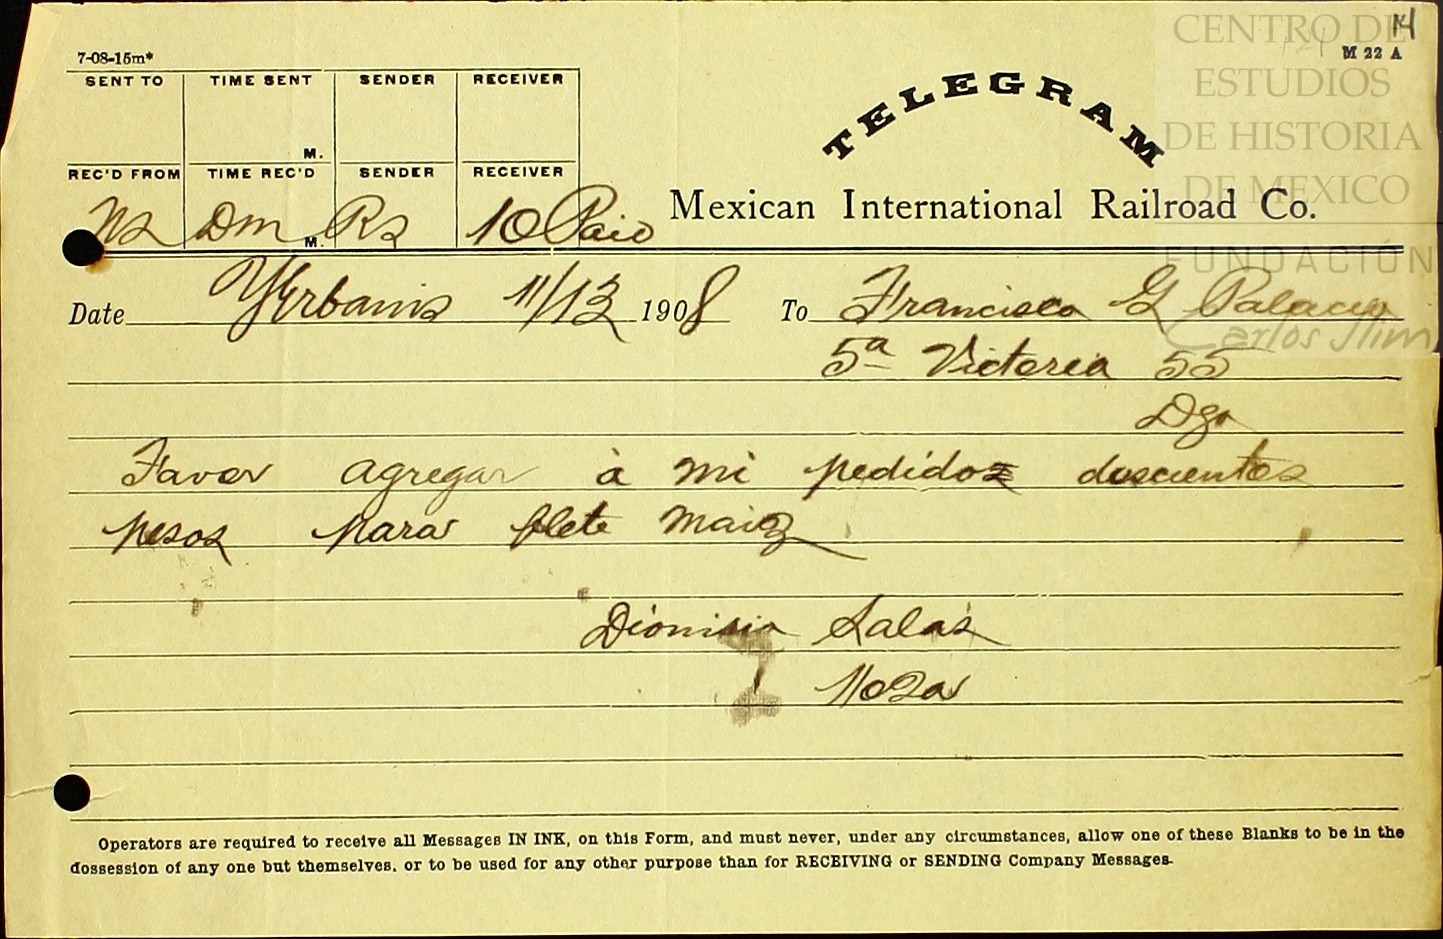 7-08-15m*
M 22 A
14
SENT TO TIME SENT SENDER RECEIVER
M.
REC'D FROM TIME REC'D SENDER RECEIVER
Ns Dm M. Rs 10 Paid
TELEGRAM
Mexican International Railroad Co.
Date Yerbanis 11/13 1908 To Francisco G Palacio
5a Victoria 55
Dgo
Favor agregar à mi pedidos doscientos
pesos para flete maiz
Dionisio Salas
1102a
Operators are required to receive all Messages IN INK, on this Form, and must never, under any circumstances, allow one of these Blanks to be in the
dossession of any one but themselves, or to be used for any other purpose than for RECEIVING or SENDING Company Messages.
CENTRO DE
ESTUDIOS
DE HISTORIA
DE MEXICO
FUNDACIÓN
Carlos Slim